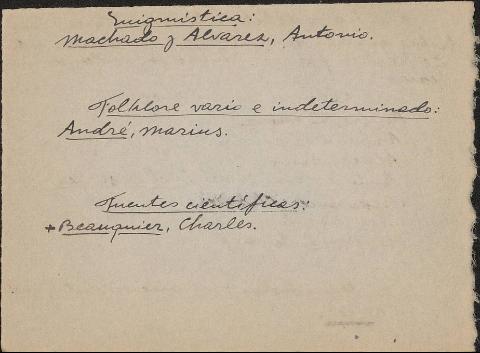 Enigmística:
Machado y Alvarez, Antonio.
Folklore vario e indeterminado:
André, Marius.
Fuentes científicas:
+ Beauquier, Charles.